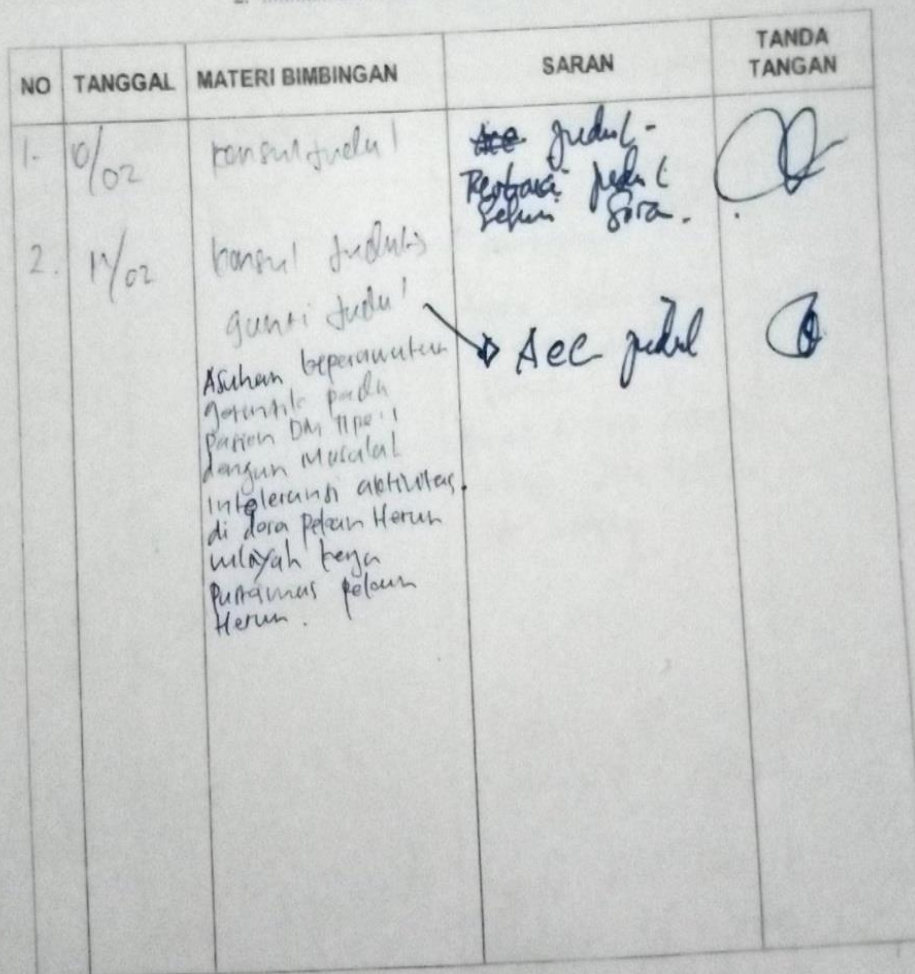 NO TANGGAL MATERI BIMBINGAN SARAN TANDA TANGAN
1. /02 konsul judul Acc judul -
judul
2. /02 konsul judul
ganti judul Acc judul
Asuhan keperawatan
gerontik pada
pasien DM Tipe II
dengan Masalah
Intoleransi aktivitas
di desa Pekan Heran
wilayah kerja
Puskesmas pekan
Heran.